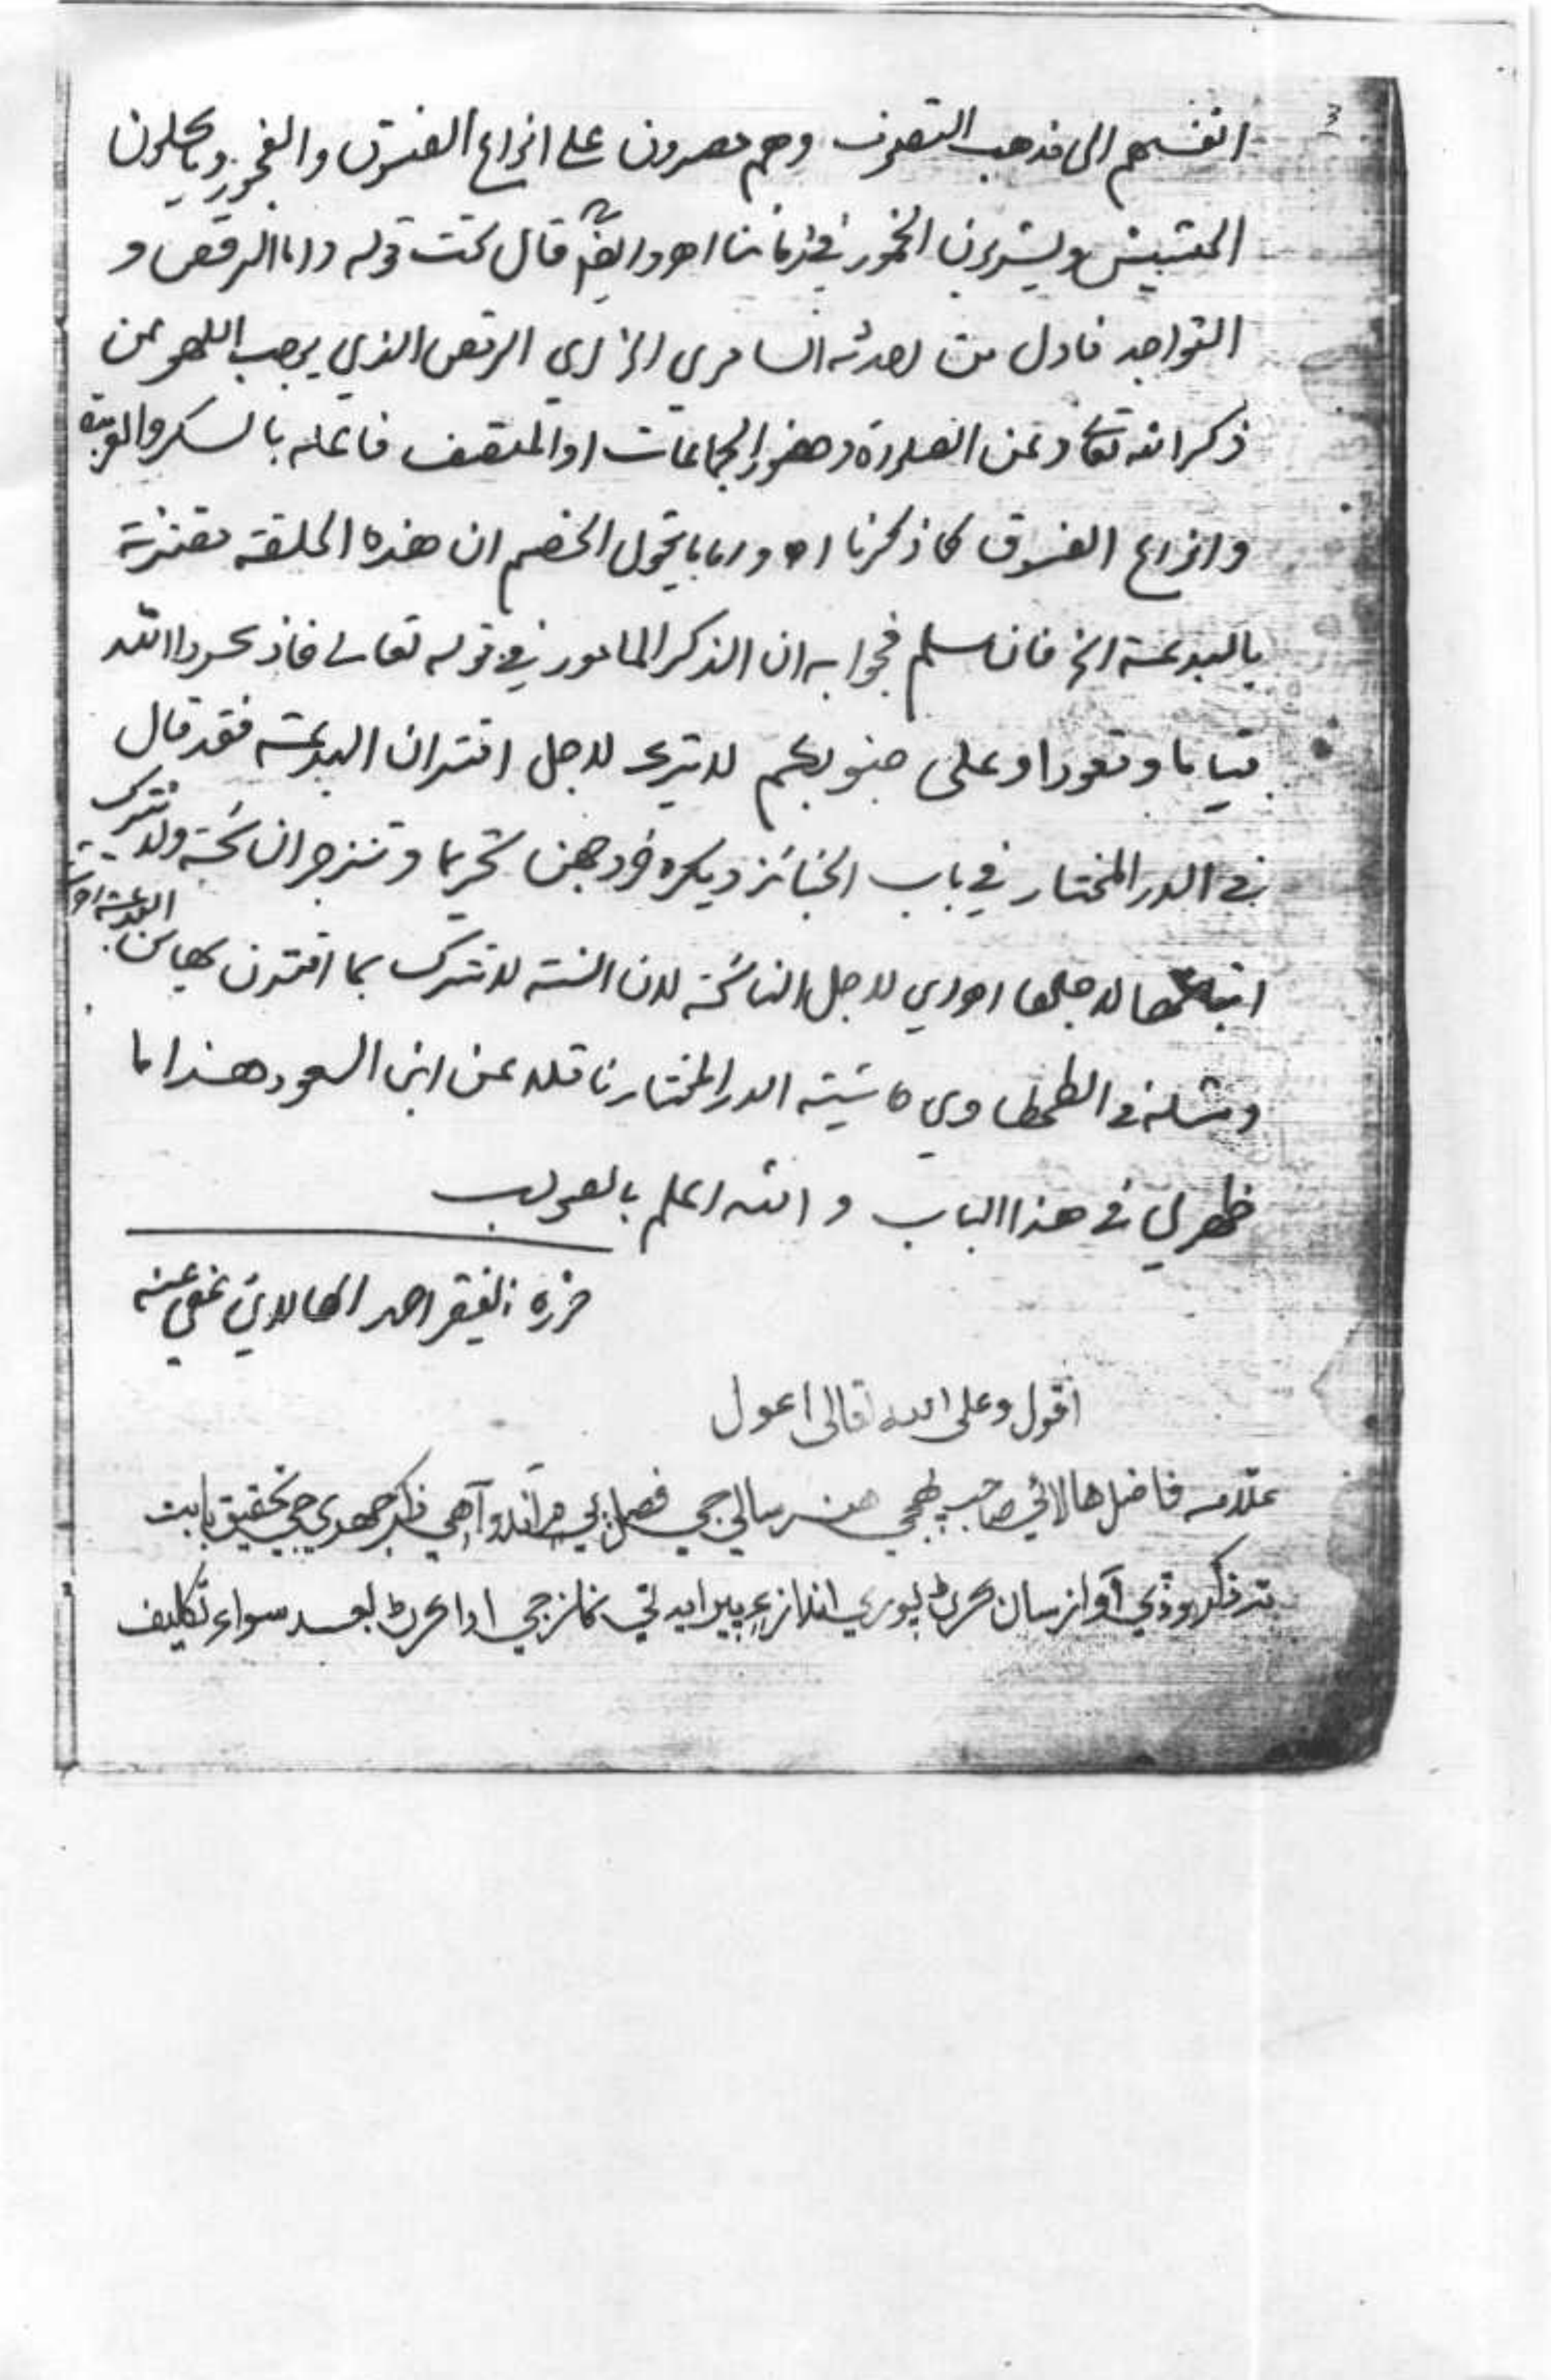 ٣
انفسهم الى مذهب التصوف وهم مصرون على انواع الفسوق والفجور وياكلون
الحشيش ويشربون الخمور في زماننا اهـ وايضا قال تحت قوله واما الرقص و
التواجد فاول من احدثه السامري الخ اي الرقص الذي يوجب اللهو عن
ذكر الله تعالى وعن الصلوة وحضور الجماعات او المتصف فاعله بالسكر والعربدة
وانواع الفسوق كما ذكرنا اهـ واما ما يقول الخصم ان هذه الحلقة مقترنة
بالبدعة الخ فان سلم فجوابه ان الذكر المامور في قوله تعالى فاذكروا الله
قياما وقعودا وعلى جنوبكم لا يترك لاجل اقتران البدعة فقد قال
في الدر المختار في باب الجنائز ويكره خروجهن تحريما وتزجر النائحة ولا يترك
اتباعها لاجلها اهـ اي لاجل النائحة لان السنة لا تترك بما اقترن بها من البدعة اهـ
ومثله في الطحطاوي حاشية الدر المختار ناقلا عن ابي السعود هذا ما
ظهر لي في هذا الباب و الله اعلم بالصواب
حرره الفقير احمد الهالائي عفي عنه
اقول وعلى الله تعالى اعول
علامه فاضل هالائي صاحب جي هن رسالي جي فصل ٻي ۾ آندو آهي ذكر جهري جي تحقيق بابت
ته ذكر وڏي آواز سان كرڻ پوري انداز ۽ پيرايه تي نماز جي ادا كرڻ بعد سواءِ تكليف